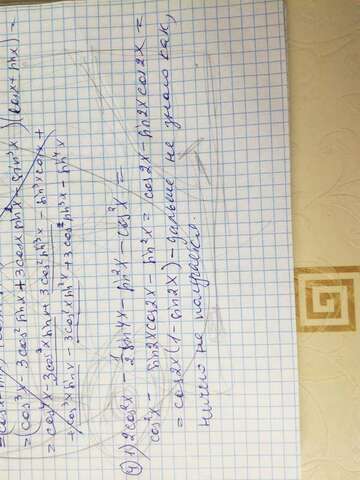 = (cos³x - 3cos²x sinx + 3cosx sin²x - sin³x)(cosx + sinx) =
= cos⁴x - 3cos³x sinx + 3cos²x sin²x - sin³x cosx +
+ cos³x sinx - 3cos²x sin²x + 3cos²x sin³x - sin⁴x
④ 1) 2cos²x - ½ sin4x - sin²x - cos²x =
cos²x - sin2x cos2x - sin²x = cos2x - sin2x cos2x =
= cos2x (1 - sin2x) - дальше не знаю как,
ничего не получается.